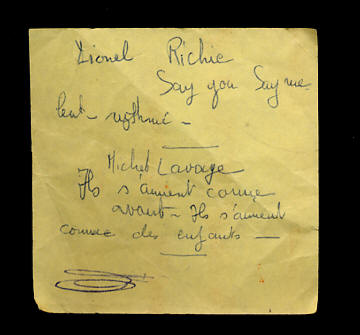 Lionel Richie
Say you Say me
lent - rythmé -
Michel Lavage
Ils s'aiment comme
avant - Ils s'aiment
comme des enfants -